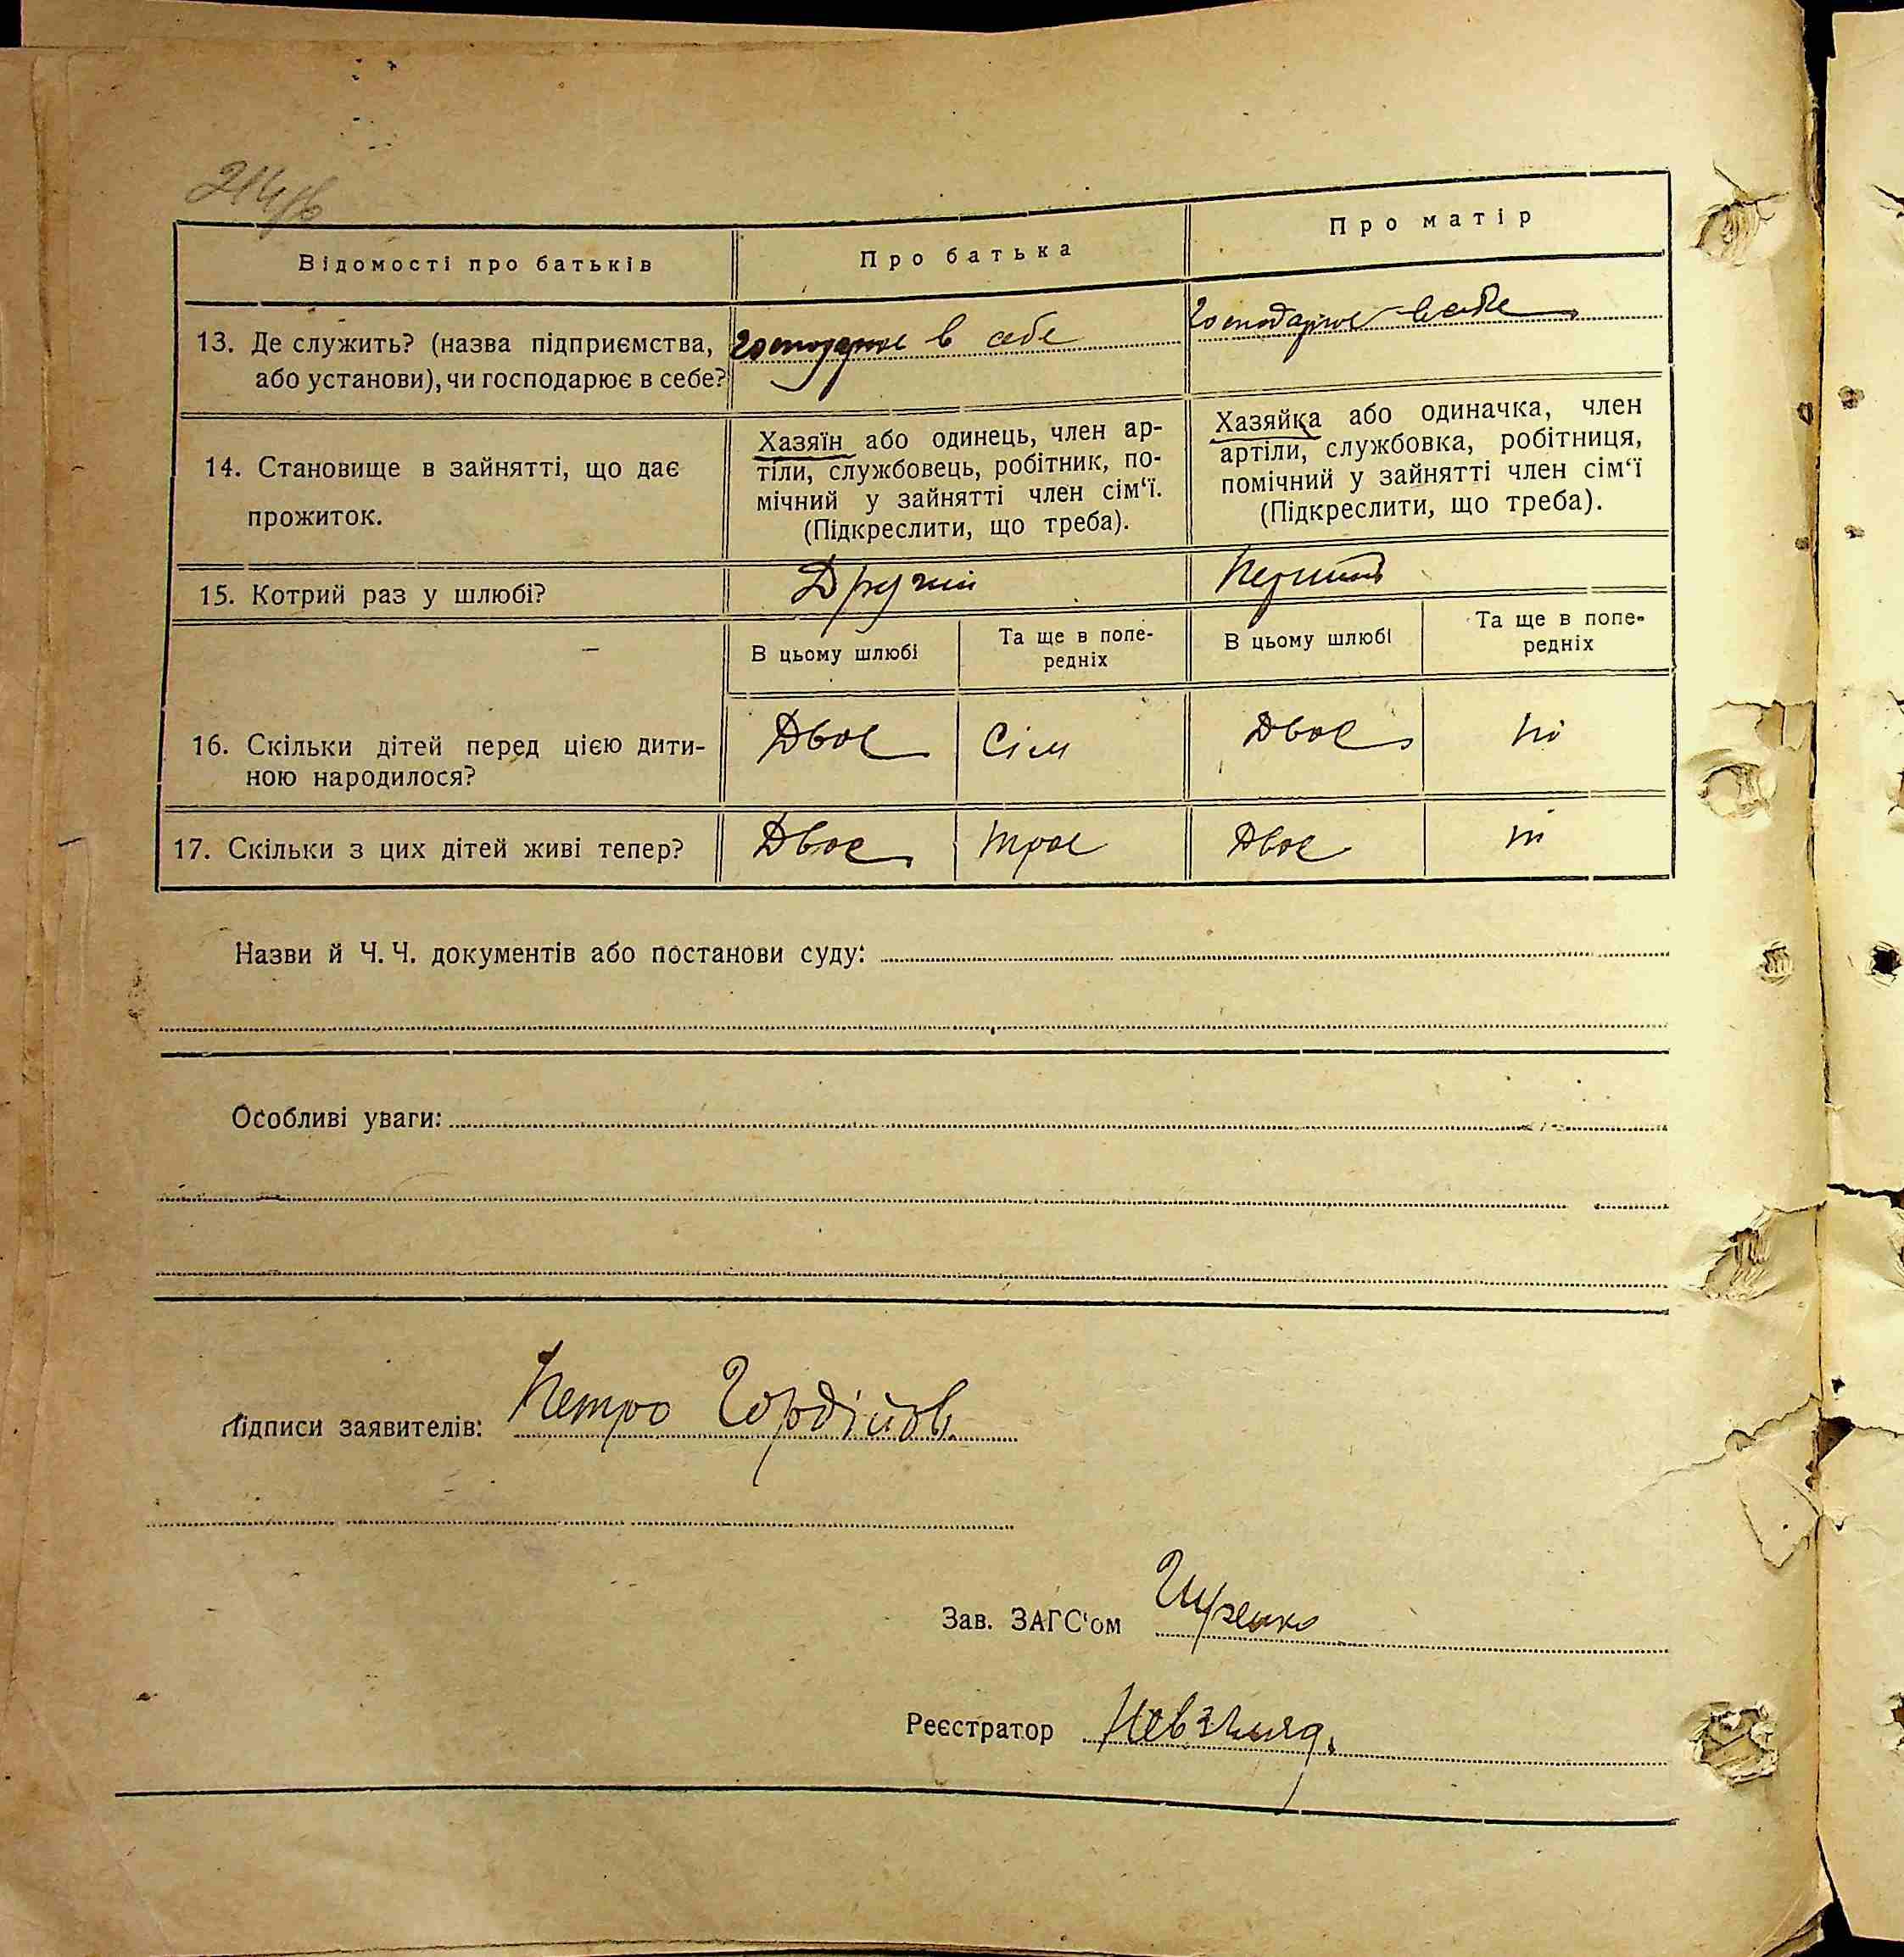 Відомості про батьків
Про батька
Про матір
13. Де служить? (назва підприємства, або установи), чи господарює в себе?
господарює в себе
господарює в себе
14. Становище в зайнятті, що дає прожиток.
Хазяїн або одинець, член ар-
тіли, службовець, робітник, по-
мічний у зайнятті член сім‘ї.
(Підкреслити, що треба).
Хазяйка або одиначка, член
артіли, службовка, робітниця,
помічний у зайнятті член сім‘ї
(Підкреслити, що треба).
15. Котрий раз у шлюбі?
Другий
Перший
В цьому шлюбі
Та ще в попе-
редніх
В цьому шлюбі
Та ще в попе-
редніх
16. Скільки дітей перед цією дити-
ною народилося?
Двоє
Сім
Двоє
Ні
17. Скільки з цих дітей живі тепер?
Двоє
троє
Двоє
ні
Назви й Ч. Ч. документів або постанови суду:
Особливі уваги:
Підписи заявителів:
Петро Гордієв
Зав. ЗАГС‘ом
Реєстратор